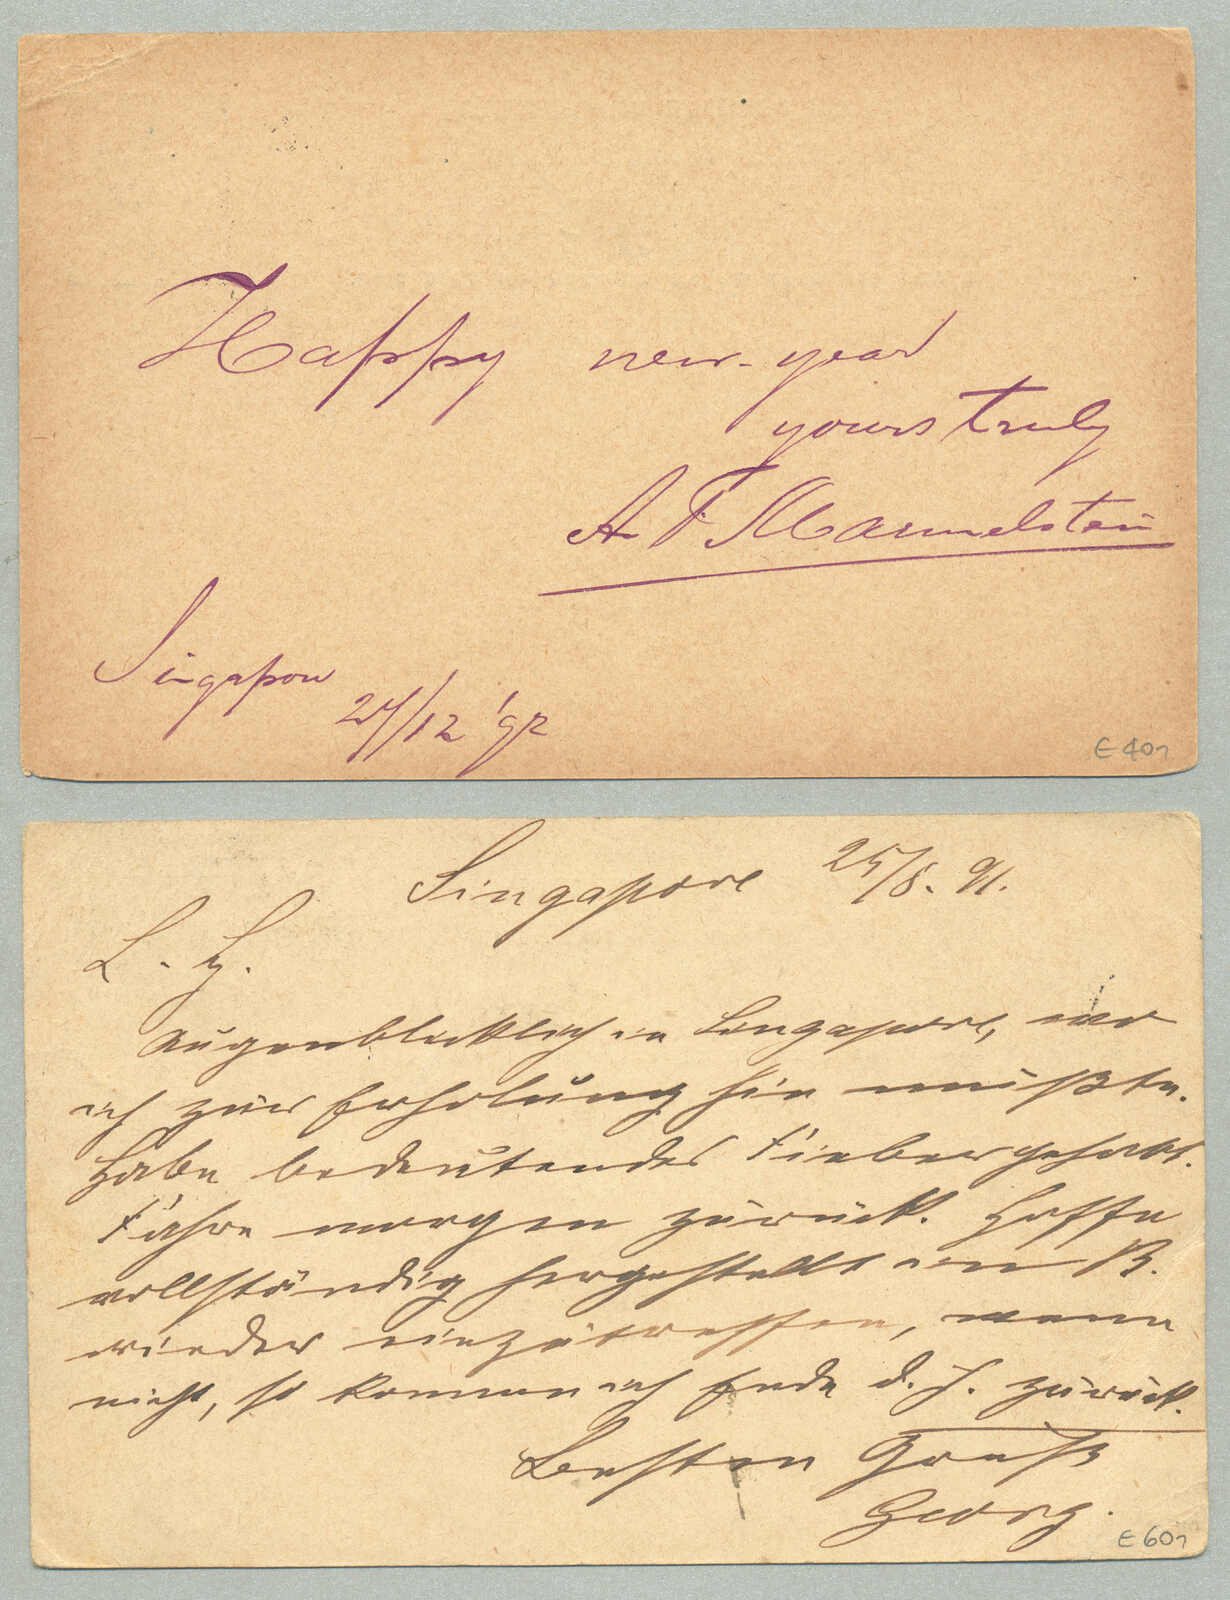 Happy new-year
yours truly
A F Marmelstein
Singapore
24/12 '92
E 40,
Singapore 25/8. 91.
L. H.
Augenblicklich in Singapore, wo
ich zur Erholung hin mußte.
Habe bedeutendes Fieber gehabt.
Fahre morgen zurück. Hoffe
vollständig hergestellt in B.
wieder einzutreffen, wenn
nicht, so komme ich Ende d. J. zurück.
Besten Gruß
Georg.
E 60,